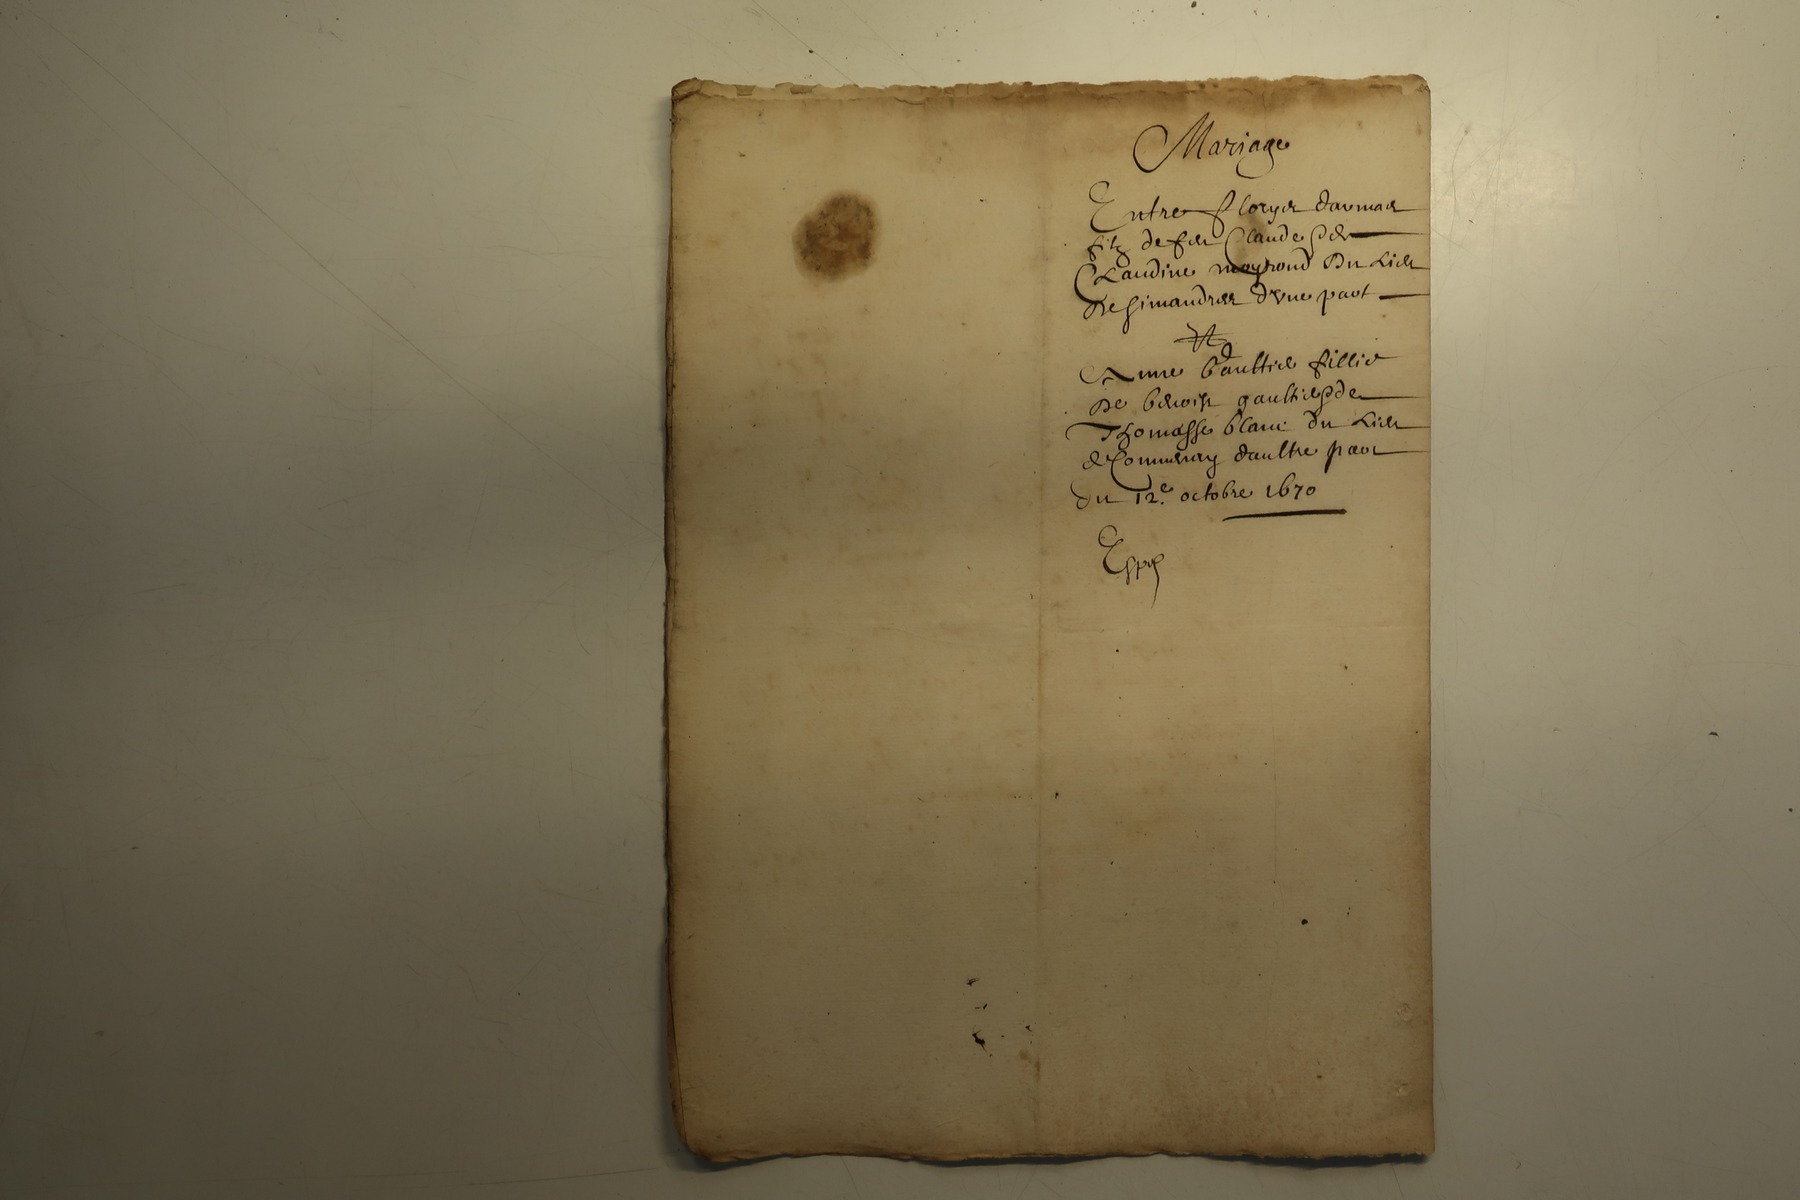 Mariage
Entre Claude
filz de feu Claude & de
Claudine moyroud du lieu
de simandres d'vne part
Et
Anne gaultier fillie
de benoist gaultier & de
Thomasse blanc du lieu
de Communay d'aultre part
du 12e. octobre 1670
Expe